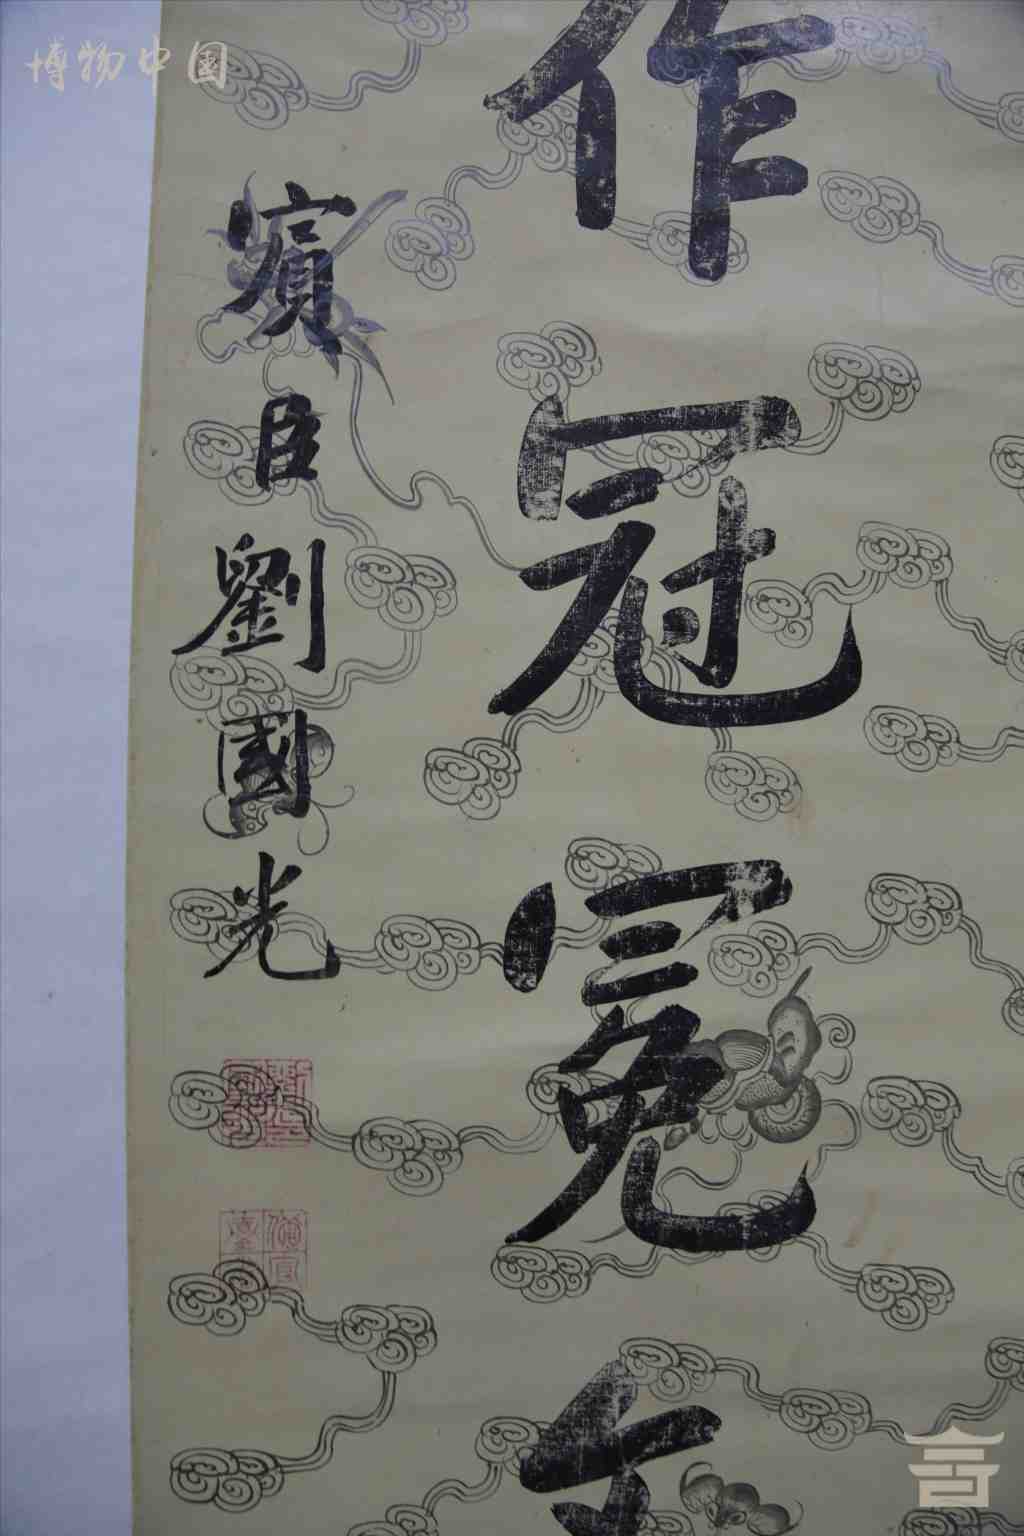 博物中国
作冠冕
賓臣劉國光